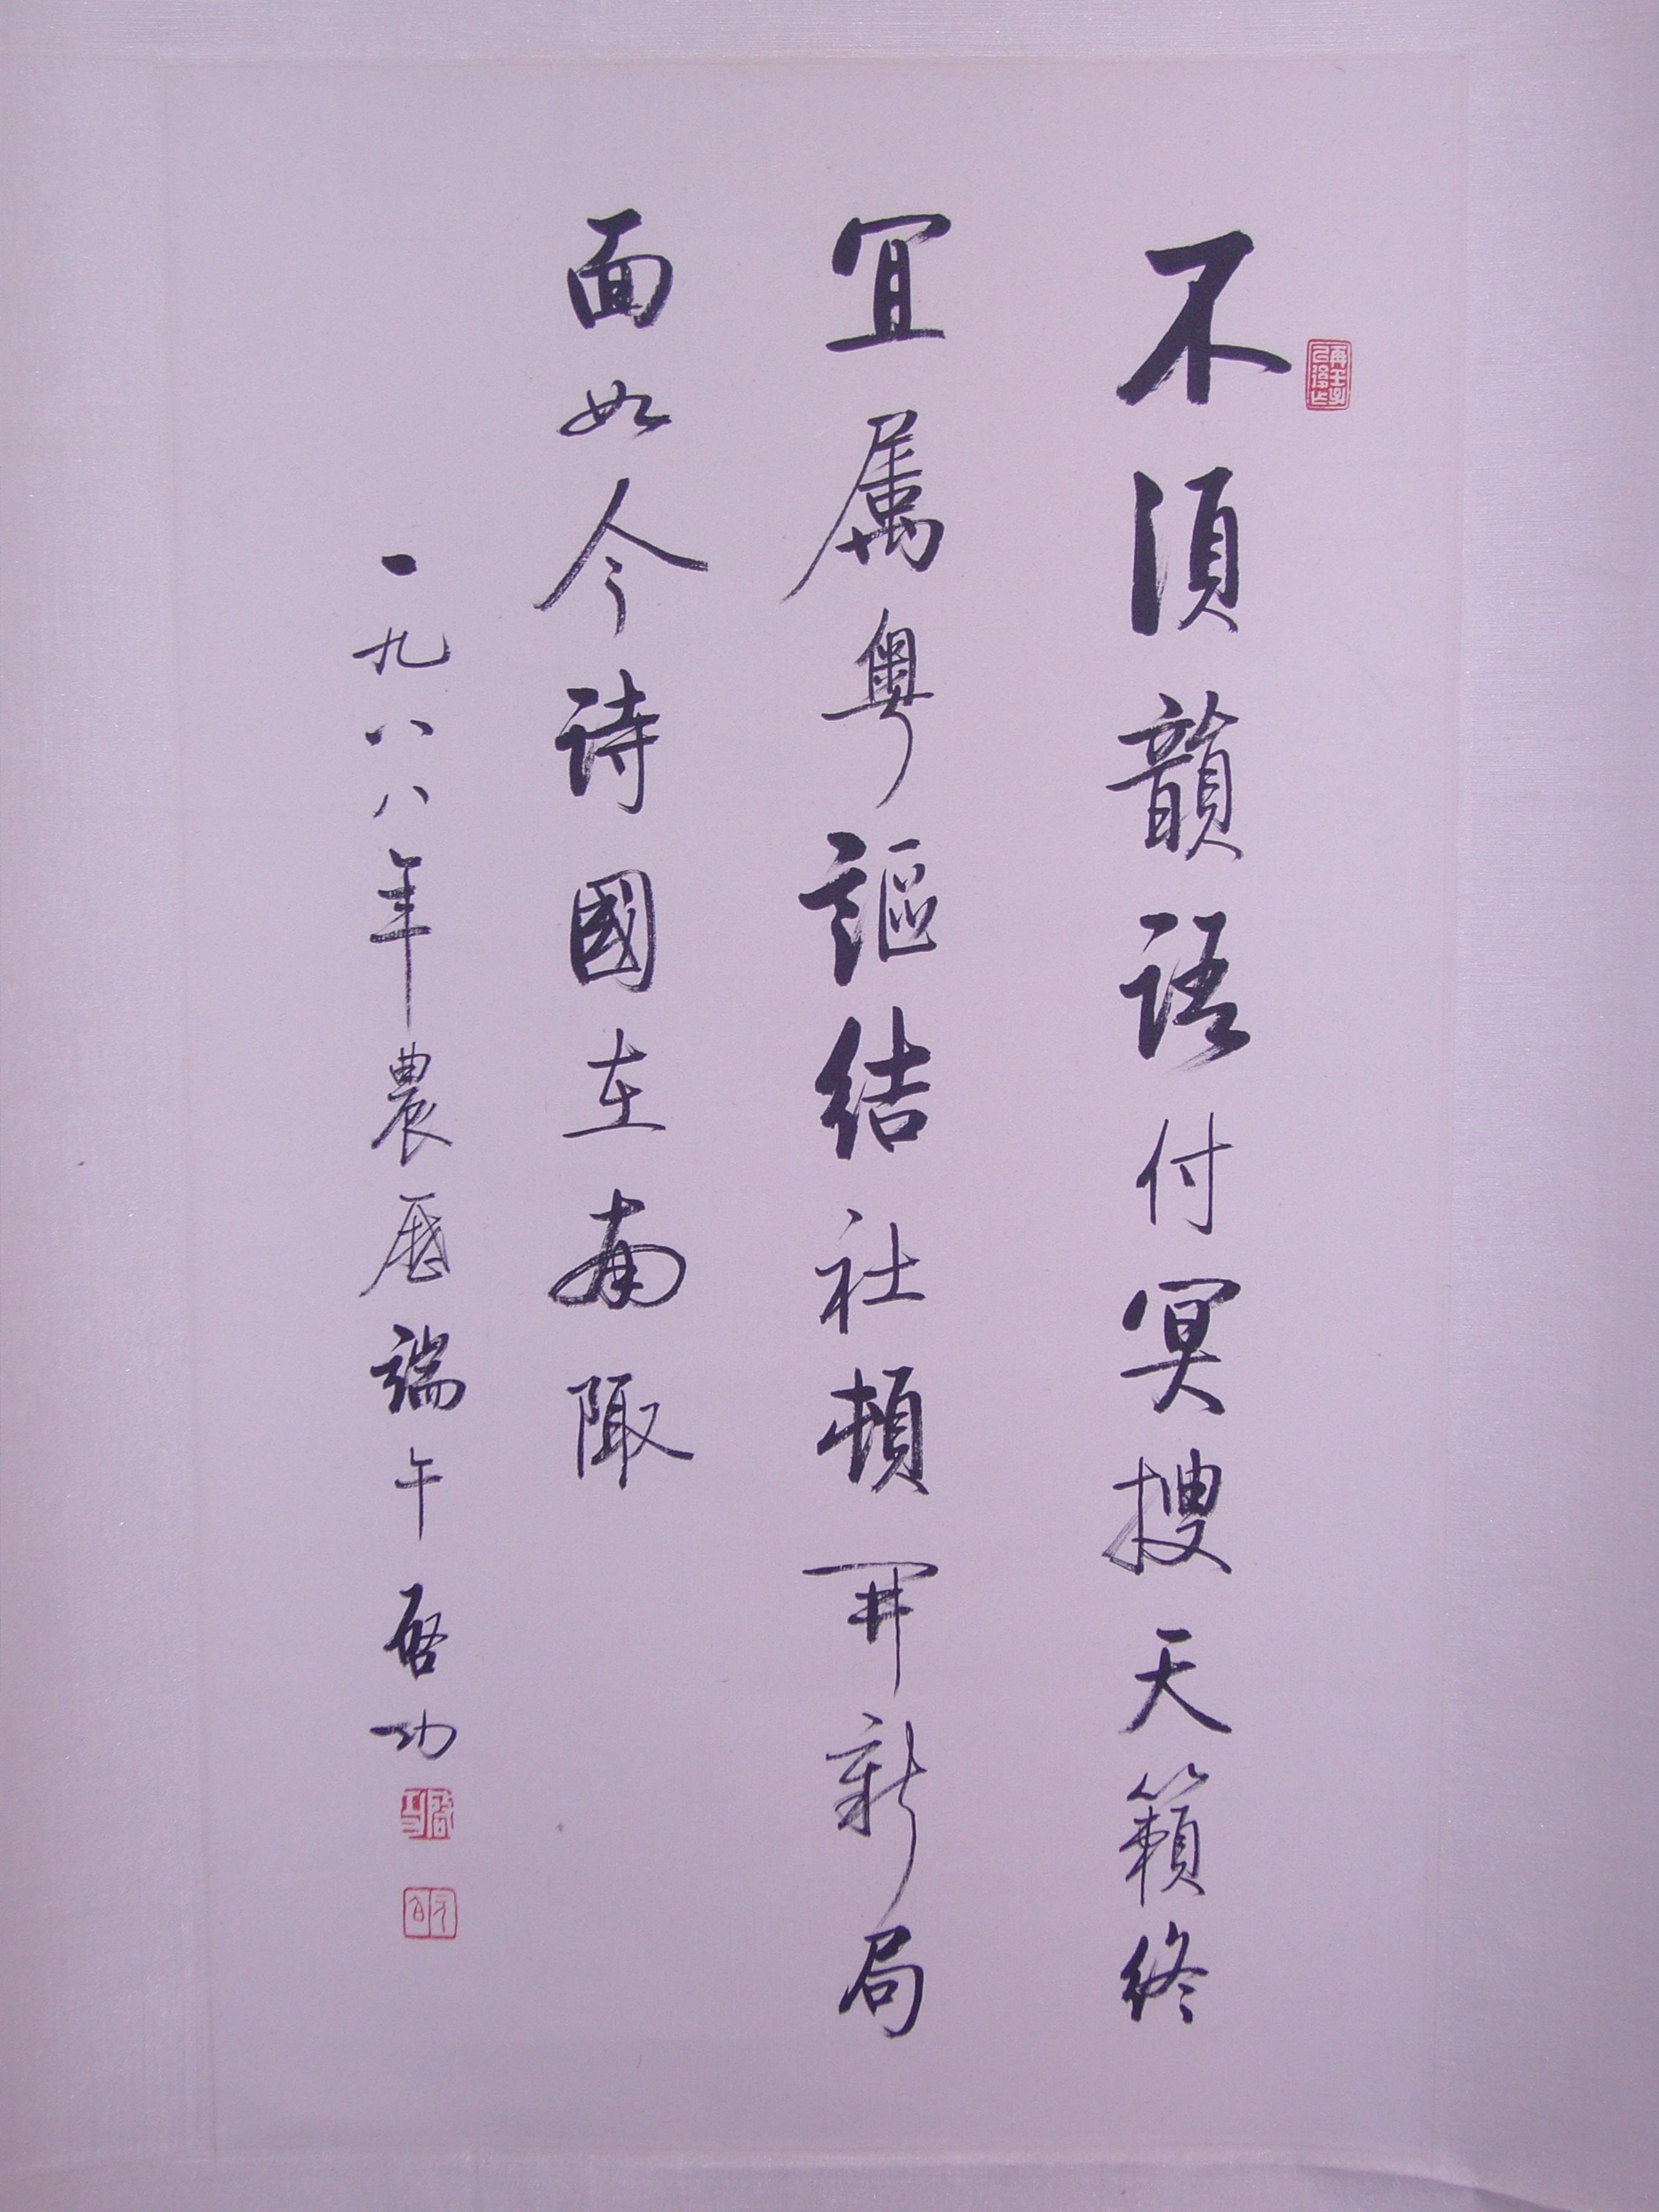 不須韻語付冥搜天籟終
宜属粤謳結社頓開新局
面如今詩國在南陬
一九八八年農歷端午啓功